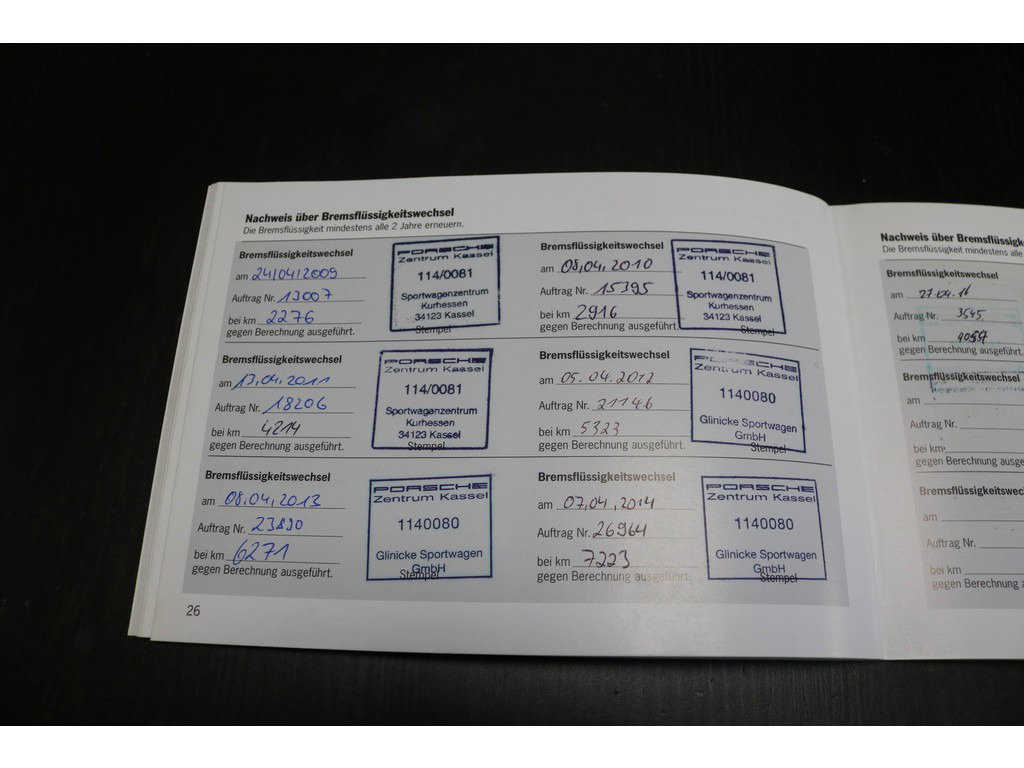 Nachweis über Bremsflüssigkeitswechsel
Die Bremsflüssigkeit mindestens alle 2 Jahre erneuern.
Bremsflüssigkeitswechsel
am 24/04/2009
Auftrag Nr. 13007
bei km 2276
gegen Berechnung ausgeführt.
PORSCHE
Zentrum Kassel
114/0081
Sportwagenzentrum
Kurhessen
34123 Kassel
Stempel
Bremsflüssigkeitswechsel
am 08,04,2010
Auftrag Nr. 15395
bei km 2916
gegen Berechnung ausgeführt.
PORSCHE
Zentrum Kassel
114/0081
Sportwagenzentrum
Kurhessen
34123 Kassel
Stempel
Bremsflüssigkeitswechsel
am 13,04,2011
Auftrag Nr. 18206
bei km 4214
gegen Berechnung ausgeführt.
PORSCHE
Zentrum Kassel
114/0081
Sportwagenzentrum
Kurhessen
34123 Kassel
Stempel
Bremsflüssigkeitswechsel
am 05.04.2012
Auftrag Nr. 21146
bei km 5323
gegen Berechnung ausgeführt.
PORSCHE
Zentrum Kassel
1140080
Glinicke Sportwagen
GmbH
Stempel
Bremsflüssigkeitswechsel
am 08,04,2013
Auftrag Nr. 23890
bei km 6271
gegen Berechnung ausgeführt.
PORSCHE
Zentrum Kassel
1140080
Glinicke Sportwagen
GmbH
Stempel
Bremsflüssigkeitswechsel
am 07,04,2014
Auftrag Nr. 26964
bei km 7223
gegen Berechnung ausgeführt.
PORSCHE
Zentrum Kassel
1140080
Glinicke Sportwagen
GmbH
Stempel
26
Nachweis über
Die Bremsflüssigkeit mindestens alle
Bremsflüssigkeitswechsel
am 27.04.16
Auftrag Nr. 3545
bei km
gegen Berechnung ausgeführt.
Bremsflüssigkeitswechsel
am
Auftrag Nr.
bei km
gegen Berechnung ausgeführt.
am
Auftrag Nr.
bei km
gegen Berechnung